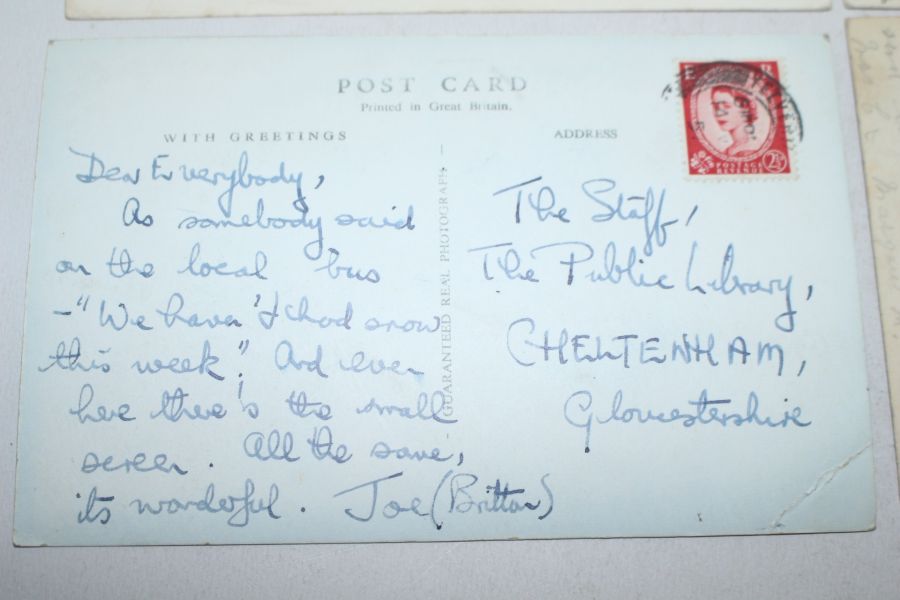 POST CARD
Printed in Great Britain.
WITH GREETINGS
ADDRESS
GUARANTEED REAL PHOTOGRAPH
E R
POSTAGE
REVENUE
2½D
Dear Everybody,
As somebody said
on the local bus
—"We haven't had snow
this week". And even
here there's the small
screen. All the same,
its wonderful. Joe (Brittan)
The Staff,
The Public Library,
CHELTENHAM,
Gloucestershire